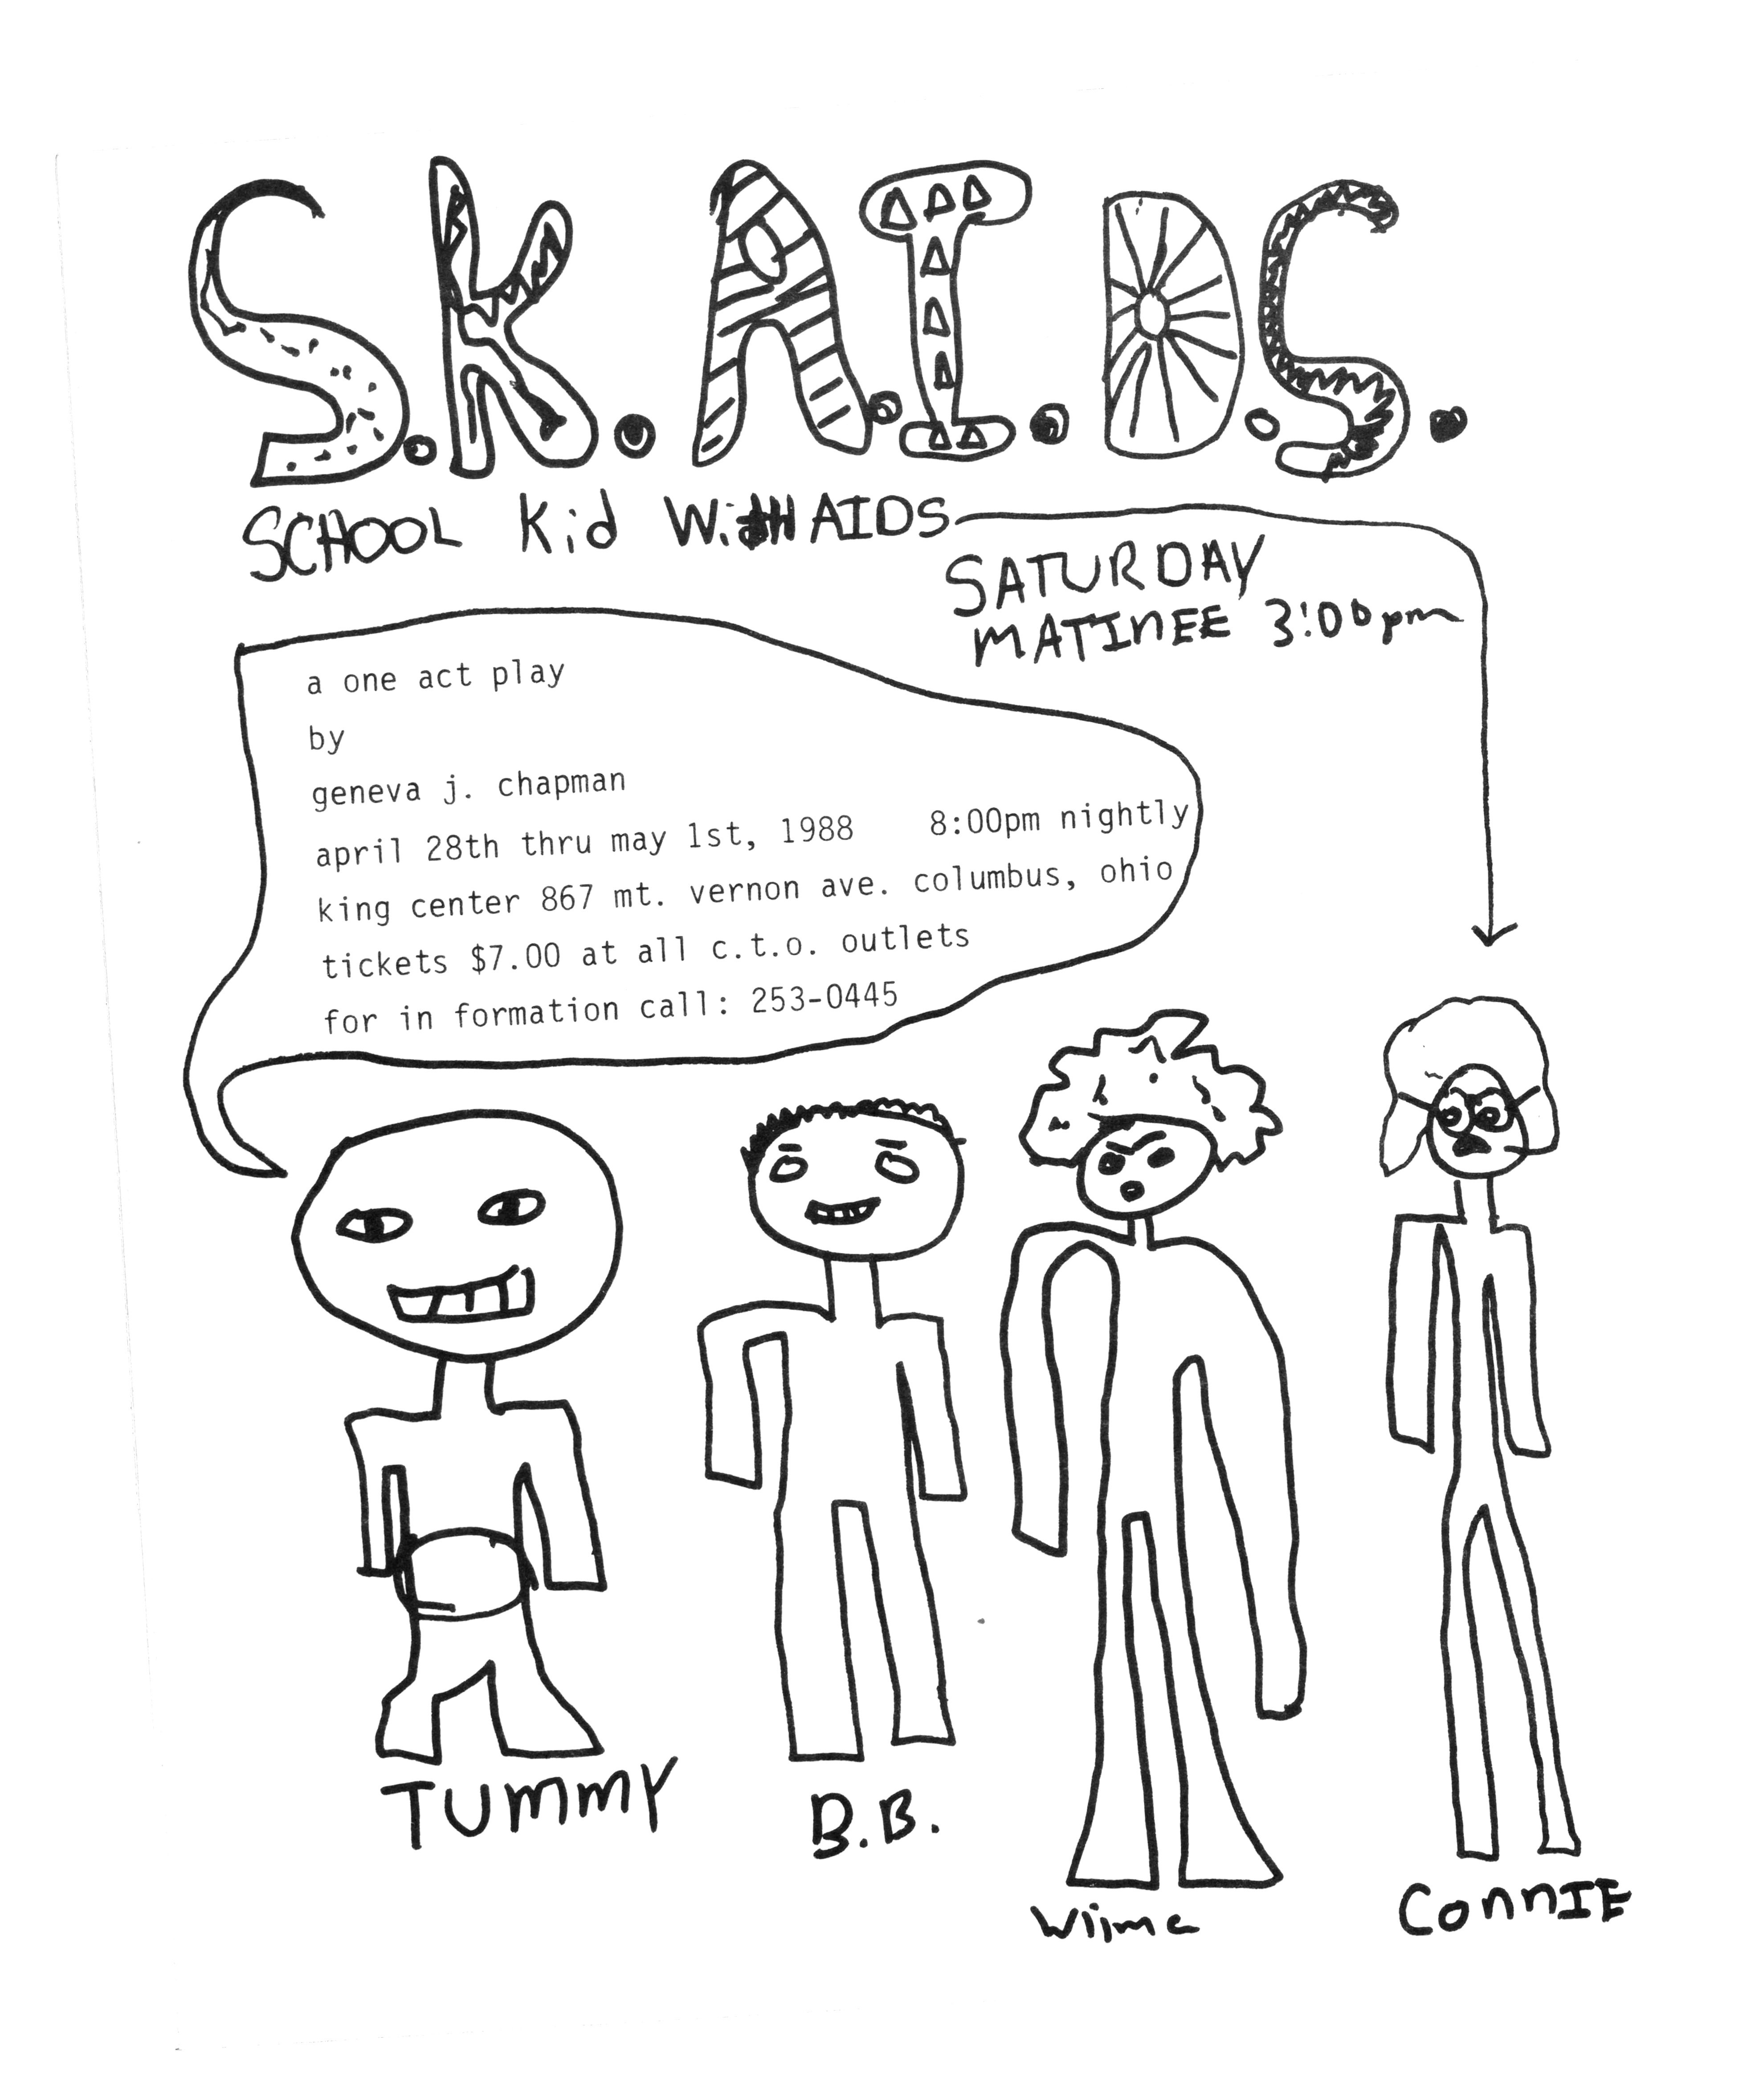 S.K.A.I.D.S.
SCHOOL Kid With AIDS
SATURDAY
MATINEE 3:00pm
a one act play
by
geneva j. chapman
april 28th thru may 1st, 1988 8:00pm nightly
king center 867 mt. vernon ave. columbus, ohio
tickets $7.00 at all c.t.o. outlets
for in formation call: 253-0445
TUMMY
B.B.
ConnIE